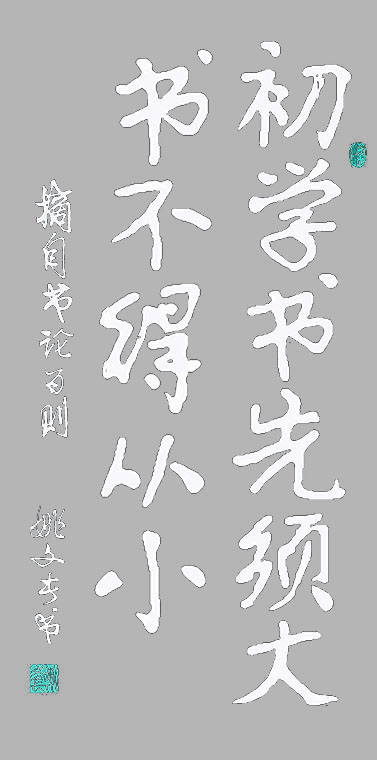 初学书先须大
书不得从小
摘自书论百则
姚文奎书